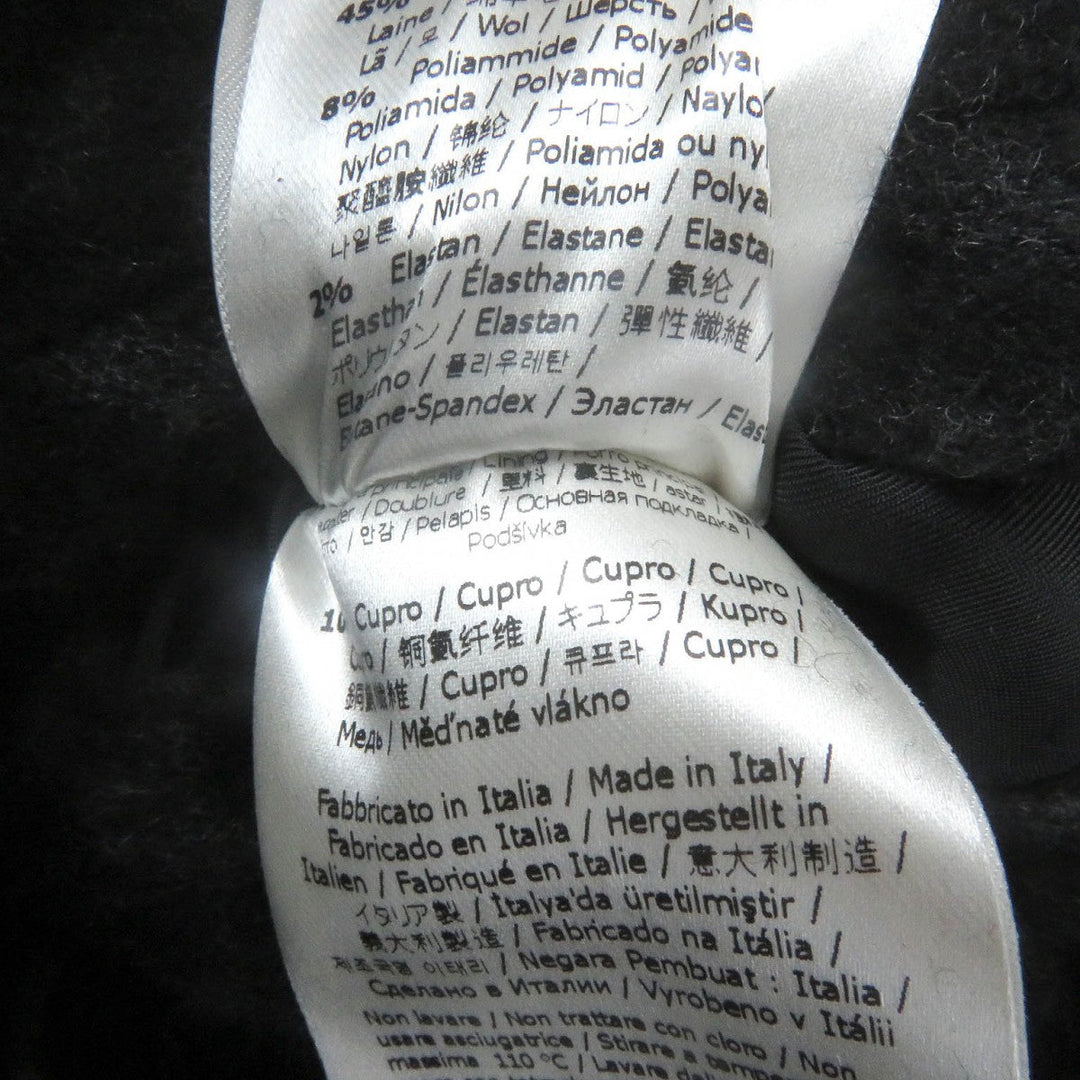 45%
Laine /
Lã / 모 / Wol / Шерсть /
8% Poliammide / Polyamide
Poliamida / Polyamid /
Nylon / 锦纶 / ナイロン /
聚醯胺纖維 / Poliamida ou
나일론 / Nilon / Нейлон /
2% Elastan / Elastane /
/ Élasthanne / 氨纶 /
/ Elastan / 彈性纖維 /
/ 폴리우레탄 /
/ Эластан /
/ Lining /
/ Doublure / 里料 / 裏生地 / astar /
/ 안감 / Pelapis / Основная подкладка /
Podšívka
Cupro / Cupro / Cupro / Cupro /
/ 铜氨纤维 / キュプラ / Kupro /
銅氨纖維 / Cupro / 큐프라 / Cupro /
Медь / Měďnaté vlákno
Fabbricato in Italia / Made in Italy /
Fabricado en Italia / Hergestellt in
Italien / Fabriqué en Italie / 意大利制造 /
イタリア製 / Italya'da üretilmiştir /
義大利製造 / Fabricado na Itália /
제조국명 이태리 / Negara Pembuat : Italia /
Сделано в Италии / Vyrobeno v Itálii
Non lavare / Non trattare con cloro / Non
usare asciugatrice / Stirare a
massima 110 °C / Lavare